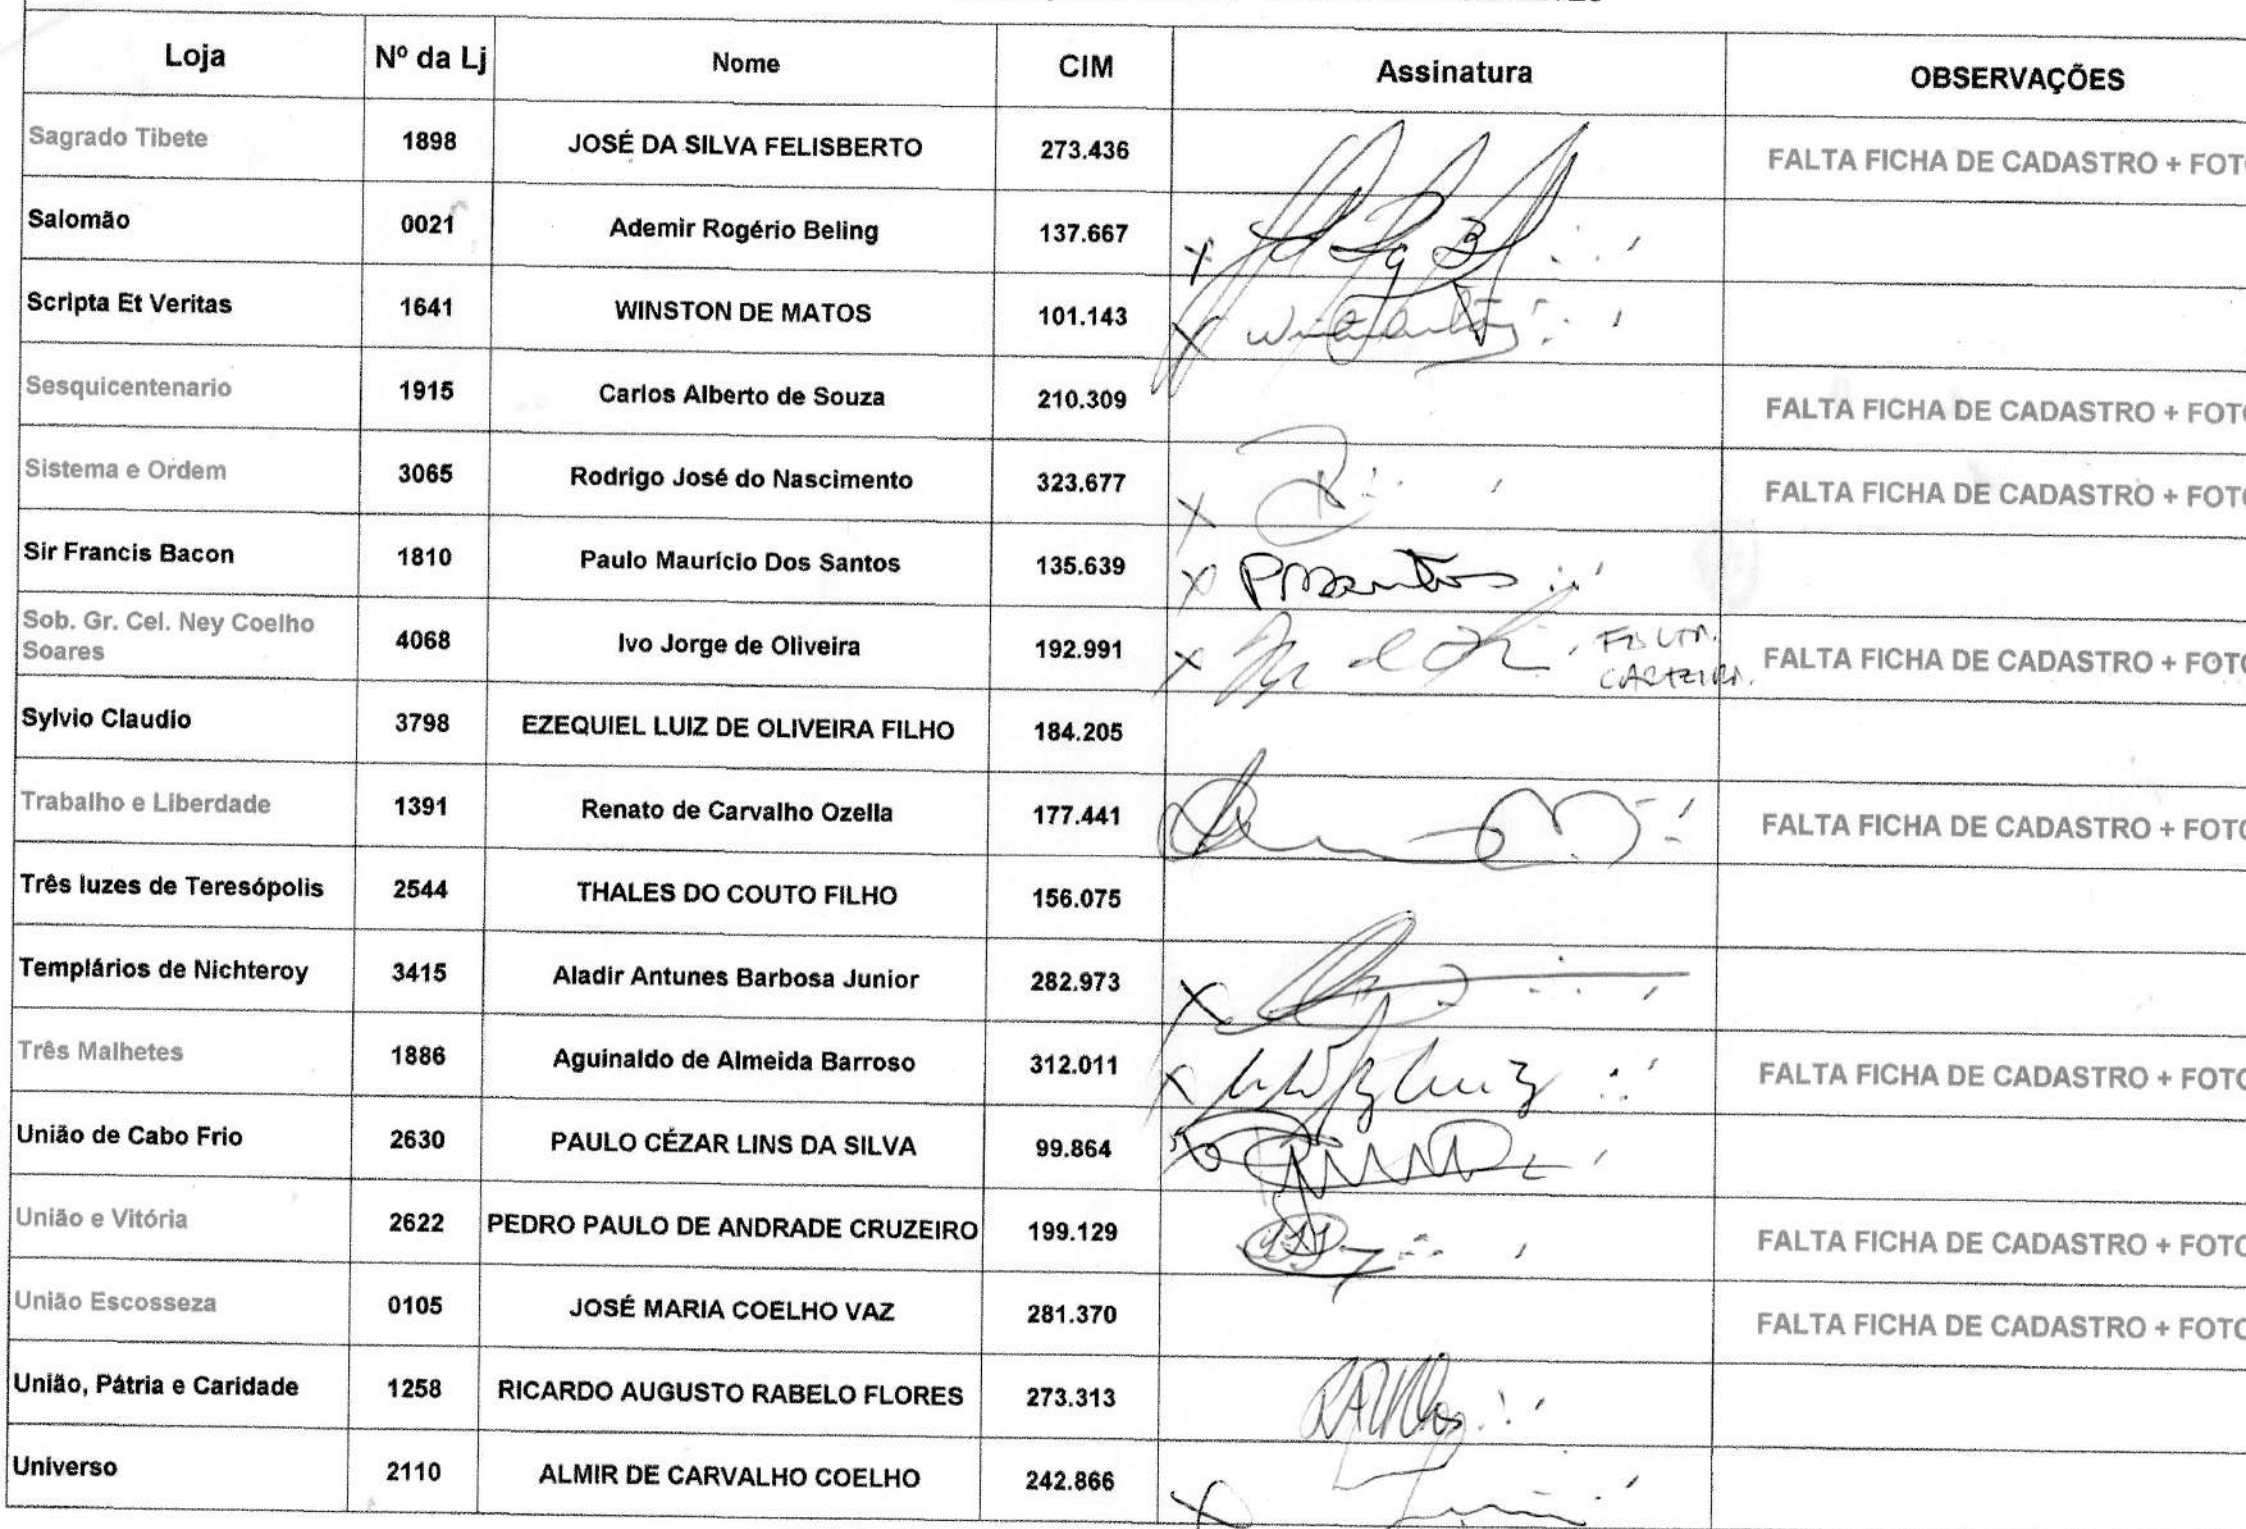 Loja Nº da Lj Nome CIM Assinatura OBSERVAÇÕES
Sagrado Tibete 1898 JOSÉ DA SILVA FELISBERTO 273.436 FALTA FICHA DE CADASTRO + FOTO
Salomão 0021 Ademir Rogério Beling 137.667
Scripta Et Veritas 1641 WINSTON DE MATOS 101.143
Sesquicentenario 1915 Carlos Alberto de Souza 210.309 FALTA FICHA DE CADASTRO + FOTO
Sistema e Ordem 3065 Rodrigo José do Nascimento 323.677 FALTA FICHA DE CADASTRO + FOTO
Sir Francis Bacon 1810 Paulo Maurício Dos Santos 135.639 PMSantos
Sob. Gr. Cel. Ney Coelho
Soares 4068 Ivo Jorge de Oliveira 192.991 FALTA FICHA DE CADASTRO + FOTO
FALTA
CARTEIRA.
Sylvio Claudio 3798 EZEQUIEL LUIZ DE OLIVEIRA FILHO 184.205
Trabalho e Liberdade 1391 Renato de Carvalho Ozella 177.441 FALTA FICHA DE CADASTRO + FOTO
Três luzes de Teresópolis 2544 THALES DO COUTO FILHO 156.075
Templários de Nichteroy 3415 Aladir Antunes Barbosa Junior 282.973
Três Malhetes 1886 Aguinaldo de Almeida Barroso 312.011 FALTA FICHA DE CADASTRO + FOTO
União de Cabo Frio 2630 PAULO CÉZAR LINS DA SILVA 99.864
União e Vitória 2622 PEDRO PAULO DE ANDRADE CRUZEIRO 199.129 FALTA FICHA DE CADASTRO + FOTO
União Escosseza 0105 JOSÉ MARIA COELHO VAZ 281.370 FALTA FICHA DE CADASTRO + FOTO
União, Pátria e Caridade 1258 RICARDO AUGUSTO RABELO FLORES 273.313
Universo 2110 ALMIR DE CARVALHO COELHO 242.866